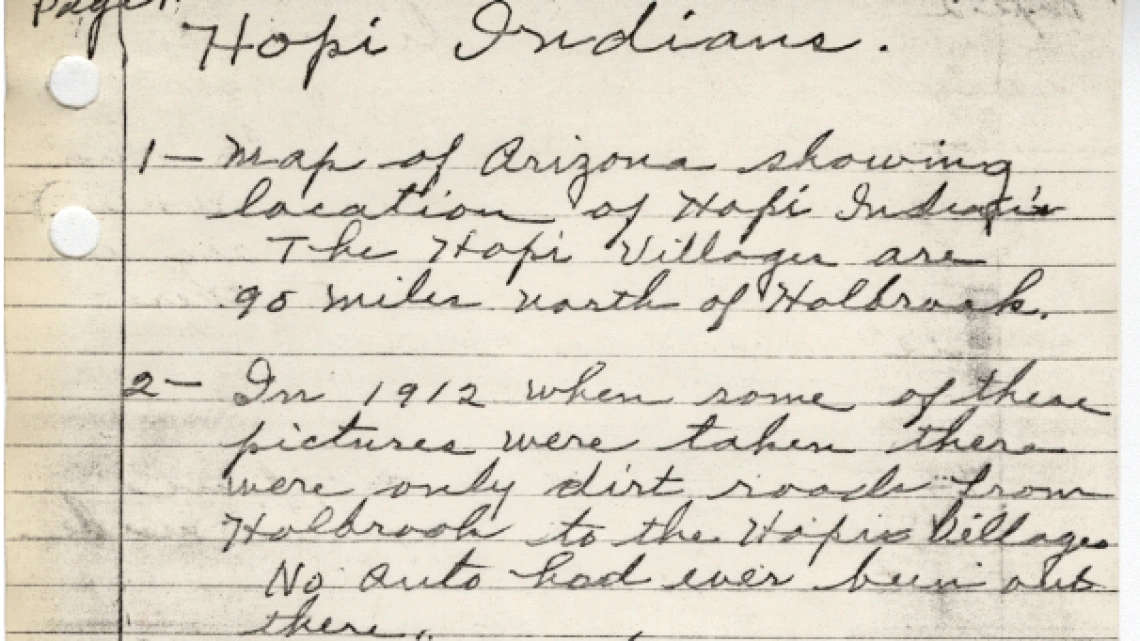 Page 1.
Hopi Indians.
1 — Map of Arizona showing
location of Hopi Indian's
The Hopi Villages are
90 miles north of Holbrook.
2 — In 1912 when some of these
pictures were taken there
were only dirt roads from
Holbrook to the Hopi Villages
No auto had ever been out
there.